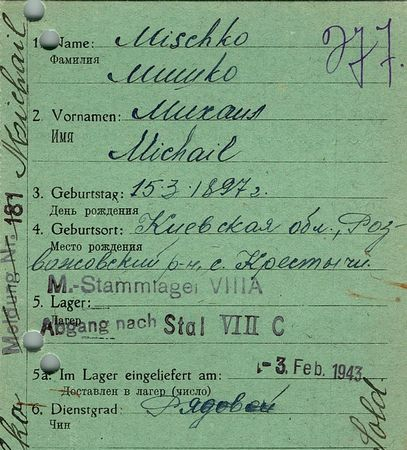 1. Name: Mischko
Фамилия Мишко
2. Vornamen: Михаил
Имя Michail
3. Geburtstag: 15.3.1897 г.
День рождения
4. Geburtsort: Киевская обл., Роз-
Место рождения
важовский р-н, с. Крестычи.
M.-Stammlager VIIIA
5. Lager:
Лагерь
Abgang nach Stal VIII C
5a. Im Lager eingeliefert am: - 3. Feb. 1943
Доставлен в лагерь (число)
6. Dienstgrad: Рядовой
Чин
Michail
Meldung Nr. 181
Sold.